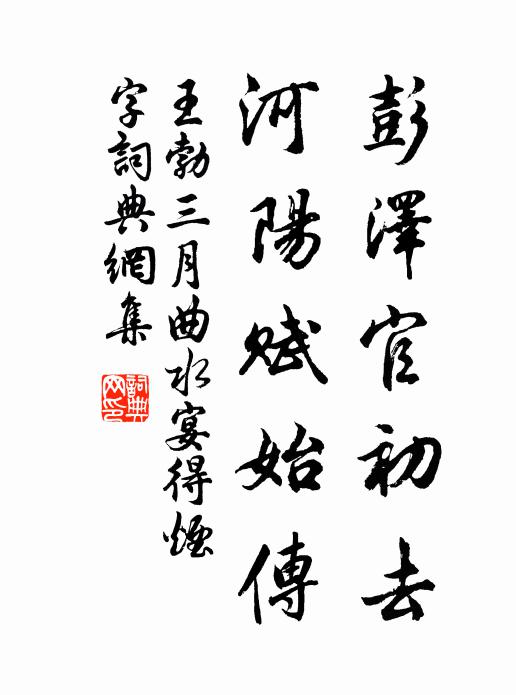 彭澤官初去
河陽賦始傳
王勃三月曲水宴得煙
字詞典網集
詞典
网印